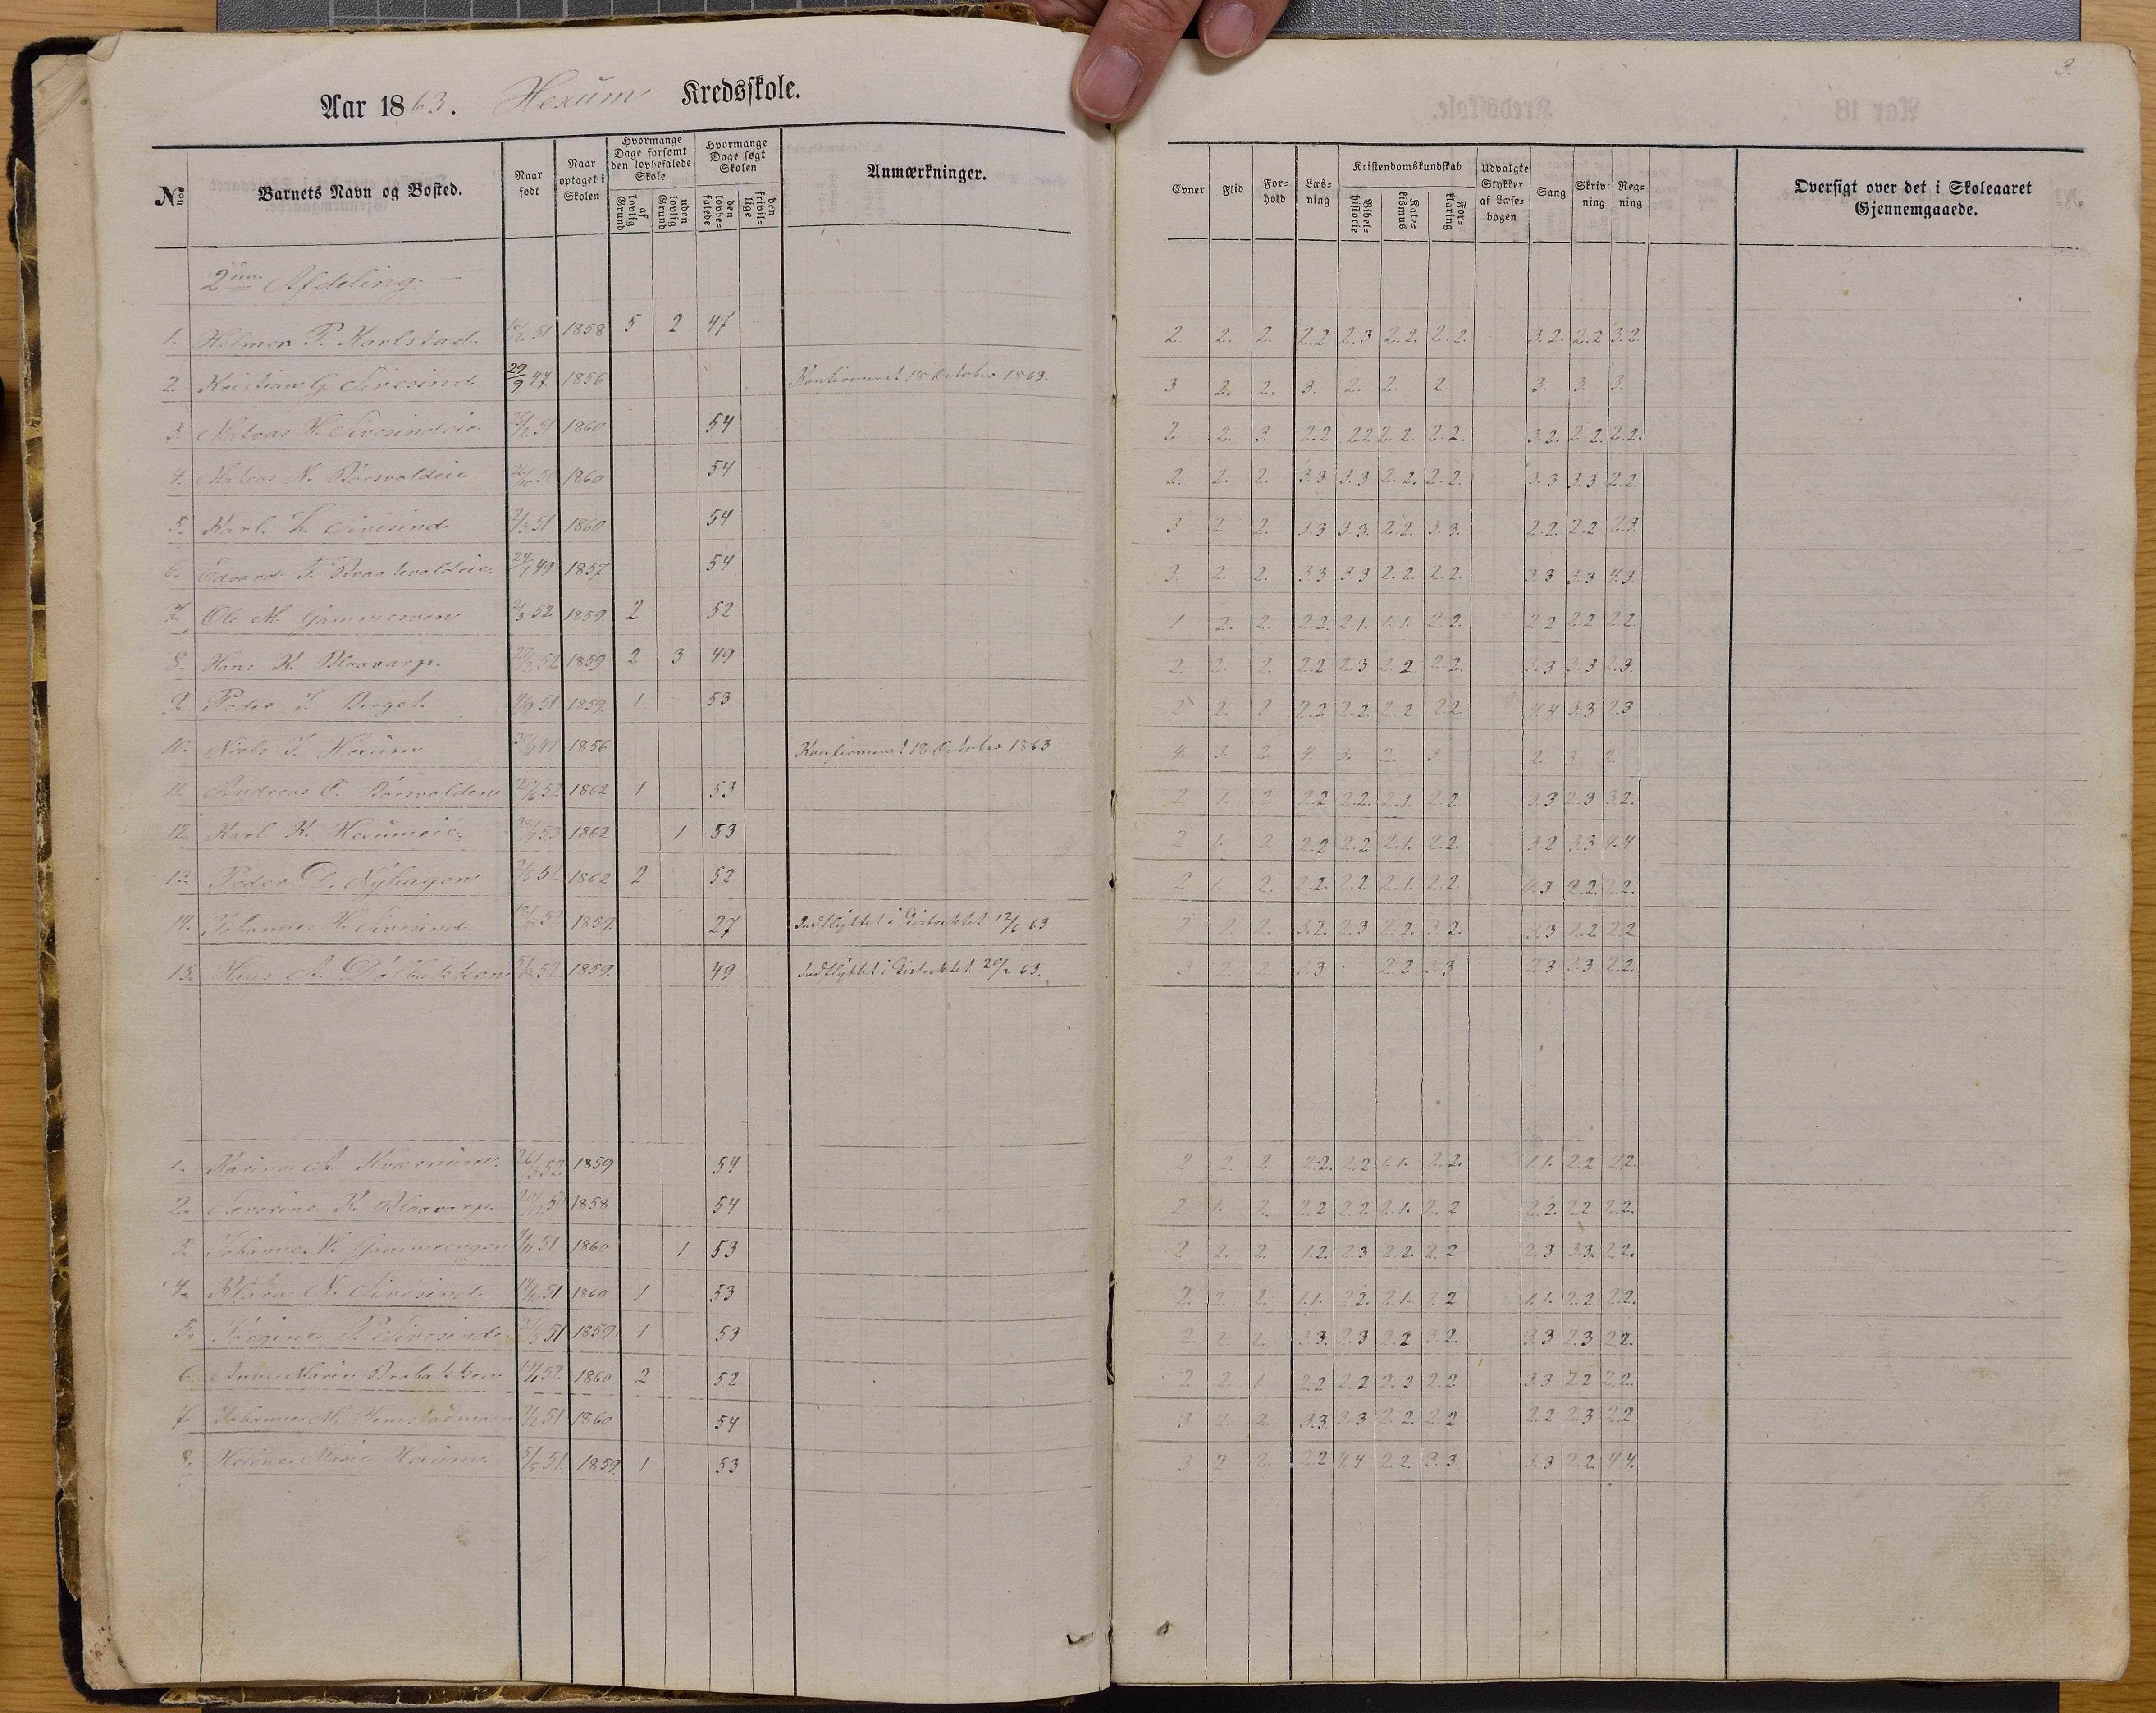 Aar 1863. Hexum Kredsskole.
3.
No. Barnets Navn og Bosted. Naar født Naar optaget i Skolen Hvormange Dage forsømt den lovbefalede Skole. af lovlig Grund uden lovlig Grund Hvormange Dage søgt Skolen den lovbefalede den frivillige Anmærkninger.
Evner Flid Forhold Læsning Kristendomskundskab Bibelhistorie Katekismus Forklaring Udvalgte Stykker af Læsebogen Sang Skrivning Regning Oversigt over det i Skoleaaret Gjennemgaaede.
2den Afdeling
1. Helmer P. Karlstad. 51 1858 5 2 47 2. 2. 2. 2.2 2.3 2.2. 2.2. 3.2. 2.2 3.2.
2. Kristian G. Sivesind 29/9 47 1856 Konfirmeret 18 October 1863. 3 2. 2. 3. 2. 2. 2. 3. 3. 3.
3. Mateas H. Sivesindeie 51 1860 54 2 2. 3. 2.2 2.2 2.2. 2.2. 3.2. 2.2. 2.2.
4. Mateas N. 1860 54 2. 2. 2. 3.3 3.3 2.2. 2.2. 3.3 3.3 2.2.
5. Karl L. Sivesind 2/3 51 1860 54 3 2. 2. 3.3 3.3. 2.2. 3.3. 2.2. 2.2 2.3.
6. Edvard F. 49 1857 54 3. 2. 2. 3.3 3.3 2.2. 2.2. 3.3 3.3 4.3.
7. Ole M. 52 1859. 2 52 1 2. 2. 2.2. 2.1. 1.1. 2.2. 2.2 2.2 2.2.
8. Hans K. Blaavarp. 52 1859 2 3 49 2. 2. 2. 2.2 2.3 2.2 2.2. 3.3 3.3 2.3.
9. Peder J. Berget. 51 1859. 1 53 2 2. 2 2.2 2.2. 2.2 2.2 4.4 3.3 2.3
10. Niels J. Hexum 1856 Konfirmeret 18 October 1863 4. 3. 2. 4. 3. 2. 3. 2. 3 2.
11. Andreas O. 52 1862 1 53 2 1. 2 2.2 2.2. 2.1. 2.2. 3.3 2.3 3.2.
12. Karl K. Hexumeie. 53 1862 1 53 2 1. 2 2.2 2.2 2.1. 2.2. 3.2 3.3 4.4
13. Peder D. Nyhagen 52 1862 2 52 2 1. 2. 2.2. 2.2 2.1. 2.2. 4.3 2.2. 2.2.
14. Johannes H. Sivesind. 52 1859. 27 Indflyttet i Distriktet 12/6 63 2 2. 2. 3.2. 2.3 2.2. 3.2. 3.3 2.2 2.2
15. Hans A. Dølbakken 52. 1859. 49 Indflyttet i Distriktet 20/2 63. 3 2. 2. 3.3 2.2 3.3 2.3 3.3 2.2.
1. Karine A. 52. 1859 54 2 2. 2. 2.2. 2.2 1.1. 2.2. 1.1. 2.2 2.2.
2. Severine K. Blaavarp. 1858 54 2. 1. 2. 2.2 2.2 2.1. 2.2 2.2. 2.2 2.2.
3. Johanne M. 51 1860 1 53 2. 2. 2. 1.2. 2.3 2.2. 2.2 2.3 3.3. 2.2.
4. N. Sivesind. 51 1860 1 53 2. 2. 2. 1.1. 2.2. 2.1. 2.2 1.1. 2.2 2.2.
5. Jørgine P. Sivesind. 51 1859. 1 53 2. 2. 2. 3.3. 2.3 2.2 3.2. 3.3 2.3 2.2.
6. Anne Marie 52 1860 2 52 2 2. 1 2.2 2.2 2.2 2.2 3.3 2.2 2.2.
7. Johanne M. 51 1860 54 3 2. 2. 3.3. 3.3 2.2. 2.2 2.2 2.3 2.2
8. Helene Marie Hexum. 51. 1859. 1 53 3 2. 2. 2.2 4.4 2.2. 3.3 3.3 2.2 4.4.